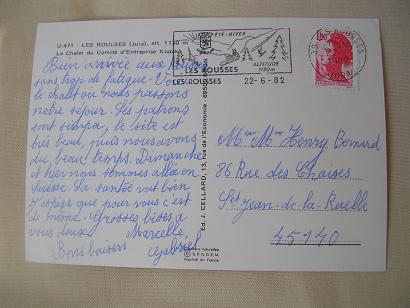 U-471 - LES ROUSSES (Jura), alt. 1130 m
Le Chalet du Comité d'Entreprise Kodak
Bien arrivée aux Rousses
sans trop de fatigue. Voici
le chalet ou nous passons
notre séjour. Les patrons
sont sympa, le site est
très beau, puis nous avons
du beau temps. Dimanche
et hier nous sommes allés en
Suisse. La santé va bien
J'espère que pour vous c'est
de même. Grosses bises a
vous deux. Marcelle,
Bons baisers Gabriel
Ed. J. CELLARD, 13, rue de l'Economie - 69500
Couleurs naturelles
© S.P.A.D.E.M.
Imprimé en France
ÉTÉ-HIVER
ALTITUDE
1130m
LES ROUSSES
LES ROUSSES 22-6-82
39 LES ROUSSES
JURA
Mr Mme Henry Bernard
86 Rue des Chaises
St Jean-de-la-Ruelle
45140